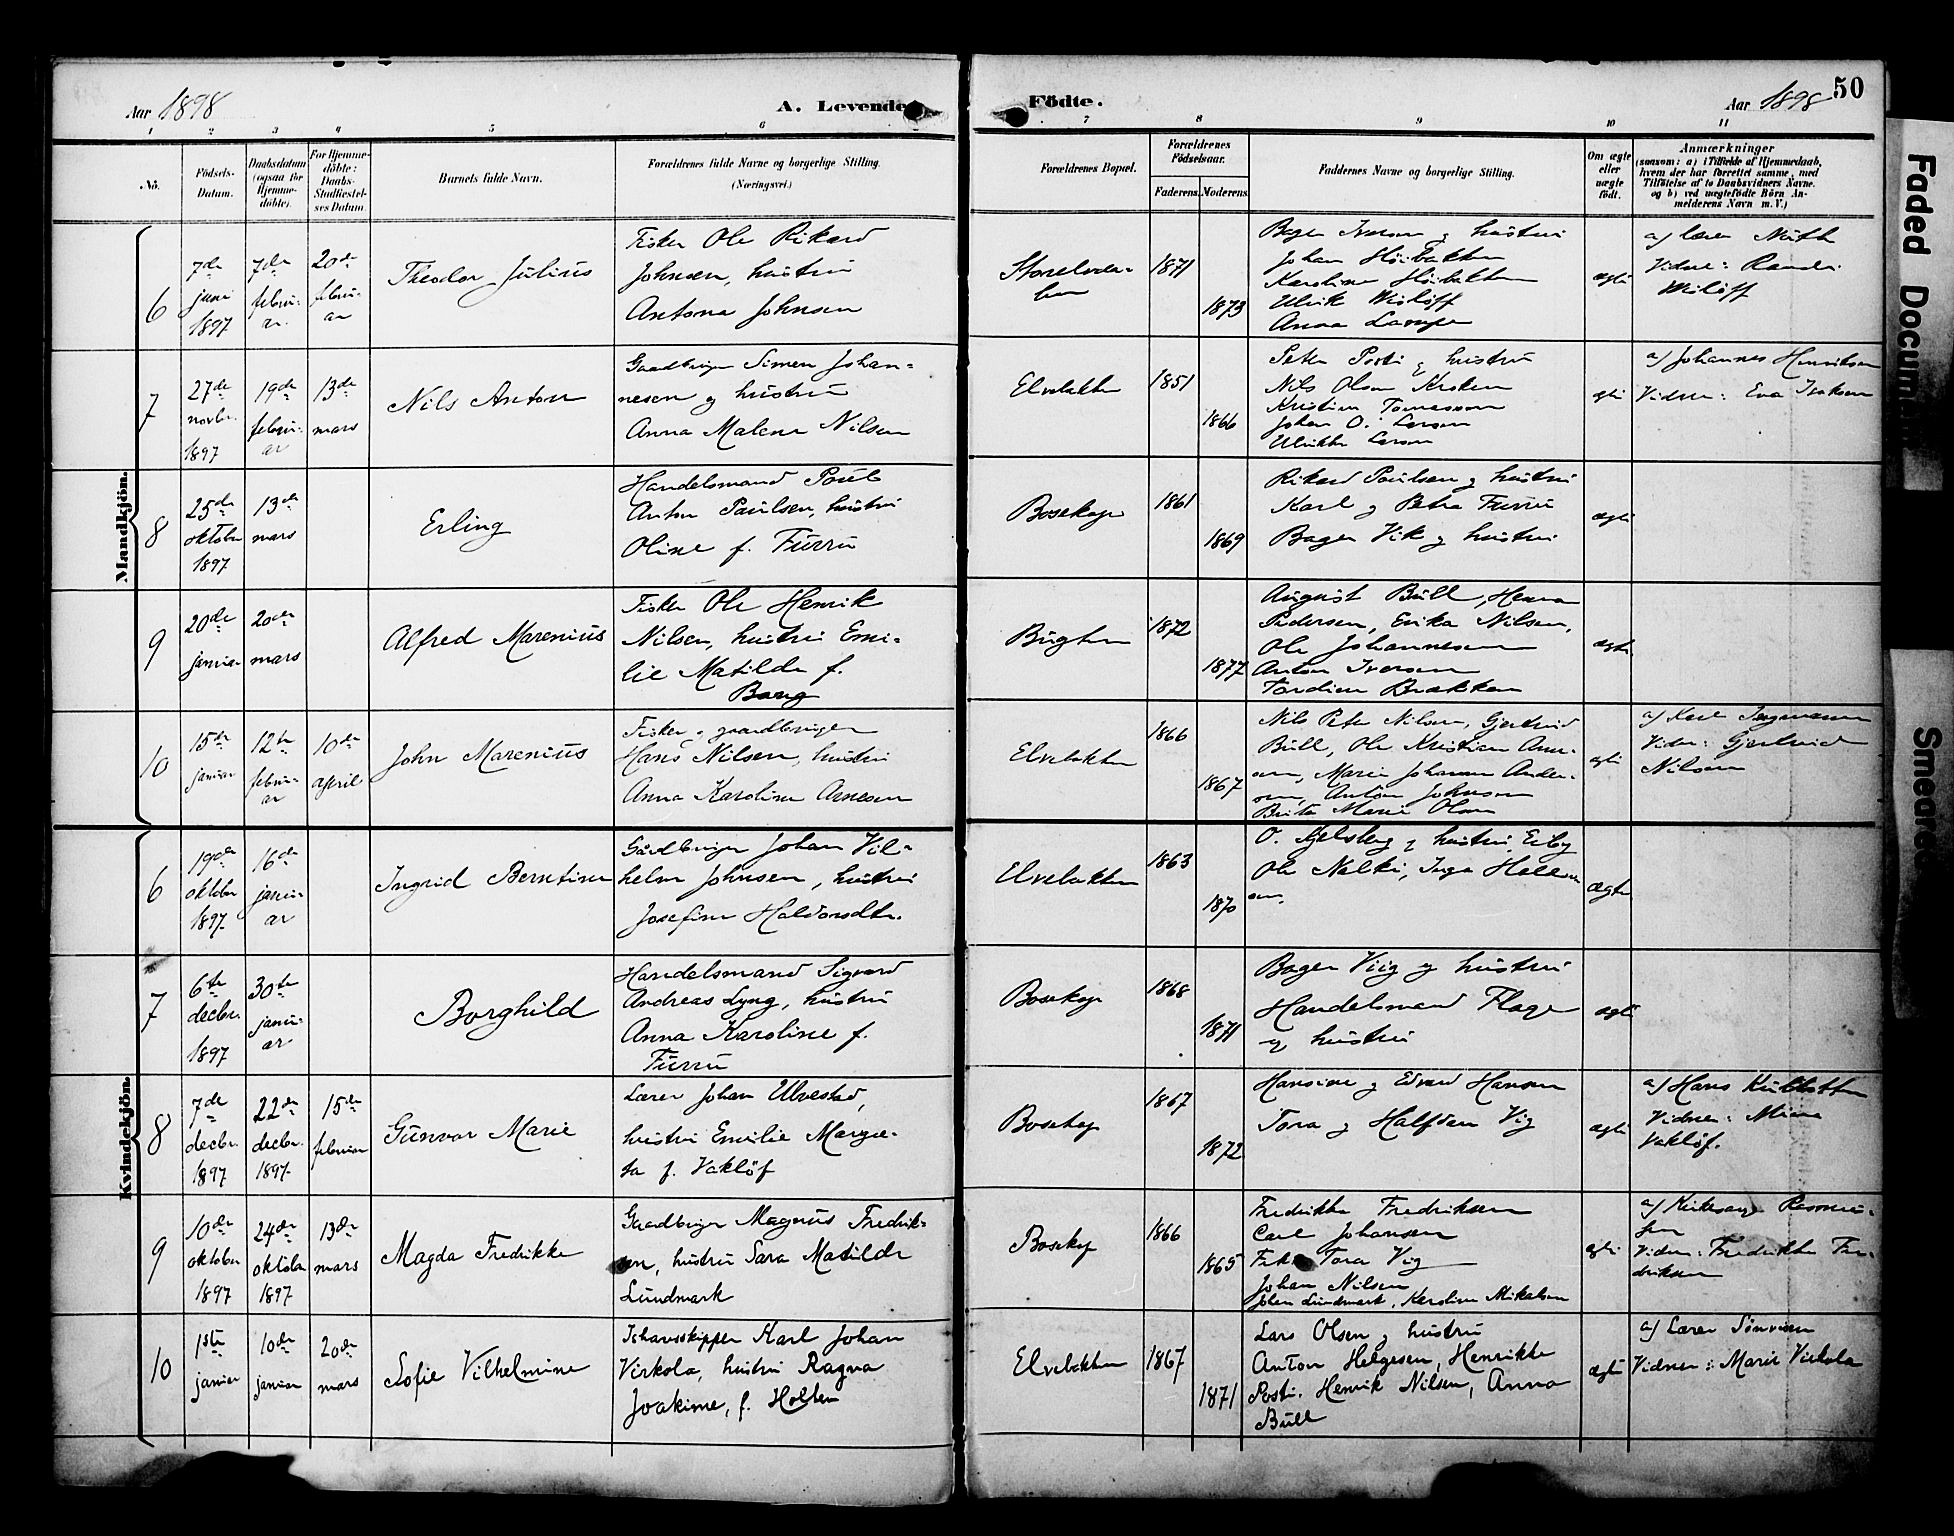 Aar 1898
A. Levende
Födte.
Aar 1898
50
1 2 3 4 5 6 7 8 9 10 11
No.
Födsels-Datum.
Daabsdatum (ogsaa for Hjemme-döbte).
For Hjemme-döbte: Daabs-Stadfæstel-ses Datum.
Barnets fulde Navn.
Forældrenes fulde Navne og borgerlige Stilling. (Næringsvei.)
Forældrenes Bopæl.
Forældrenes Födselsaar.
Faderens. Moderens.
Faddernes Navne og borgerlige Stilling.
Om ægte eller uægte födt.
Anmærkninger
(saasom: a) i Tilfælde af Hjemmedaab,
hvem der har forrettet samme, med
Tilföielse af to Daabsvidners Navne.
og b) ved uægtefödte Börn An-
melderens Navn m. V.)
Mandkjön.
6
7de juni 1897
7de februar.
20de februar
Theodor Julius
Fisker Ole Rikard
Johnsen, hustru
Antona Johnsen
1871
1873
Bager Iversen og hustru
Johan Höibakken
Karoline Höibakken
Ulrik Wislöff
Anna Lampe
ægte
a) Lærer Muth
Vidne: Randi
Wislöff
7
27de novbr. 1897
19de februar
13de mars
Nils Anton
Gaardbruger Simen Johan-
nesen og hustru
Anna Malene Nilsen
Elvebakken
1851
1866
Peter Posti og hustru
Nils Olsen Kersten
Kristine Tomassen
Johan O. Larsen
Ulrikke Larsen
ægte
a) Johannes Henriksen
Vidne: Eva Isaksen
8
25de oktober 1897
13de mars
Erling
Handelsmand Poul
Anton Paulsen, hustru
Oline f. Furru
Bosekop
1861
1869
Rikard Paulsen og hustru
Karl og Petra Furru
Bager Vik og hustru
ægte
9
20de januar
20de mars
Alfred Marenius
Fisker Ole Henrik
Nilsen, hustru Emi-
lie Matilde f.
Bang
Bugten
1872
1877
August Bull, Hanna
Pedersen, Erika Nilsen,
Ole Johannesen
Anton Iversen
Tordine Brækken
ægte
10
15de januar
12te februar
10de april
John Marenius
Fisker og gaardbruger
Hans Nilsen, hustru
Anna Karoline Arnesen
Elvebakken
1866
1867
Nils Peter Nilsen, Gjertrud
Bull, Ole Kristian Arne-
sen, Marie Johanne Ander-
sen, Anton Johnsen
Brita Marie Olsen
ægte
a) Karl Ingmann
Vidne: Gjertrud
Nilsen
Kvindekjön.
6
19de oktober 1897
16de januar
Ingrid Berntine
Gårdbruger Johan Vil-
helm Johnsen, hustru
Josefine Haldorsdtr.
Elvebakken
1863
1870
O. Gjelsberg og hustru, Eiby
ægte
7
6te decbr. 1897
30te januar
Borghild
Handelsmand Sigvard
Andreas Lyng, hustru
Anna Karoline f.
Furru
Bosekop
1868
1871
Bager Viig og hustru
Handelsmand Flage
og hustru
ægte
8
7de decbr. 1897
22de decbr. 1897
15de februar
Gunvor Marie
Lærer Johan Ulvestad,
hustru Emilie Margre-
ta f. Vaklöf
Bosekop
1867
1872
Hansine og Edvard Hansen
Tora og Halfdan Vig
ægte
a) Hans Kulstoffen
Vidne: Mina
Vaklöf.
9
10de oktober 1897
24de oktober 1897
13de mars
Magda Fredrikke
Gaardbruger Magnus Fredrik-
sen, hustru Sara Matilde
Lundmark
Bosekop
1866
1865
Fredrikke Fredriksen
Carl Johansen
Tora Vig
Johan Nilsen
Johan Lundmark, Karoline Mikalsen
ægte
a) Kirkesanger Rasmus-
sen
Vidne: Fredrikke Fre-
driksen
10
1ste januar
10de januar
20de mars
Sofie Vilhelmine
Ishavsskipper Karl Johan
Virkola, hustru Ragna
Joakime, f. Holten
Elvebakken
1867
1871
Lars Olsen og hustru
Anton Helgesen, Henrikke
Posti. Henrik Nilsen, Anna
Bull
ægte
a) Lærer Sönvisen
Vidne: Marie Virkola
Faded Docum
Smeare